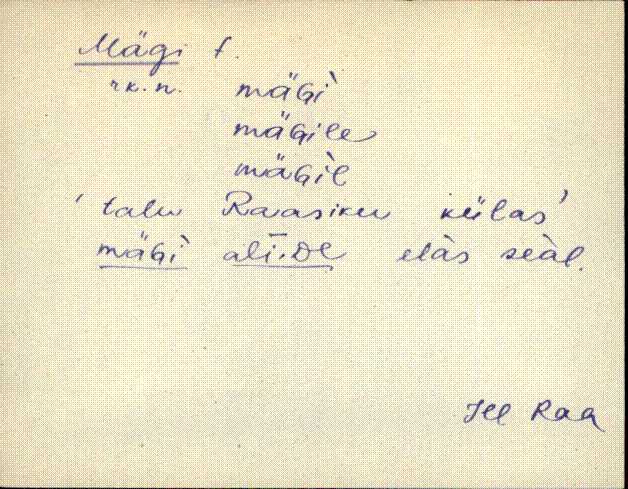 Mägi t.
rk. n. mäGì
mäGile
mäGìl
' talu Raasiku külas '
mäGì alī.De elàs seàl.
Jõe Raa